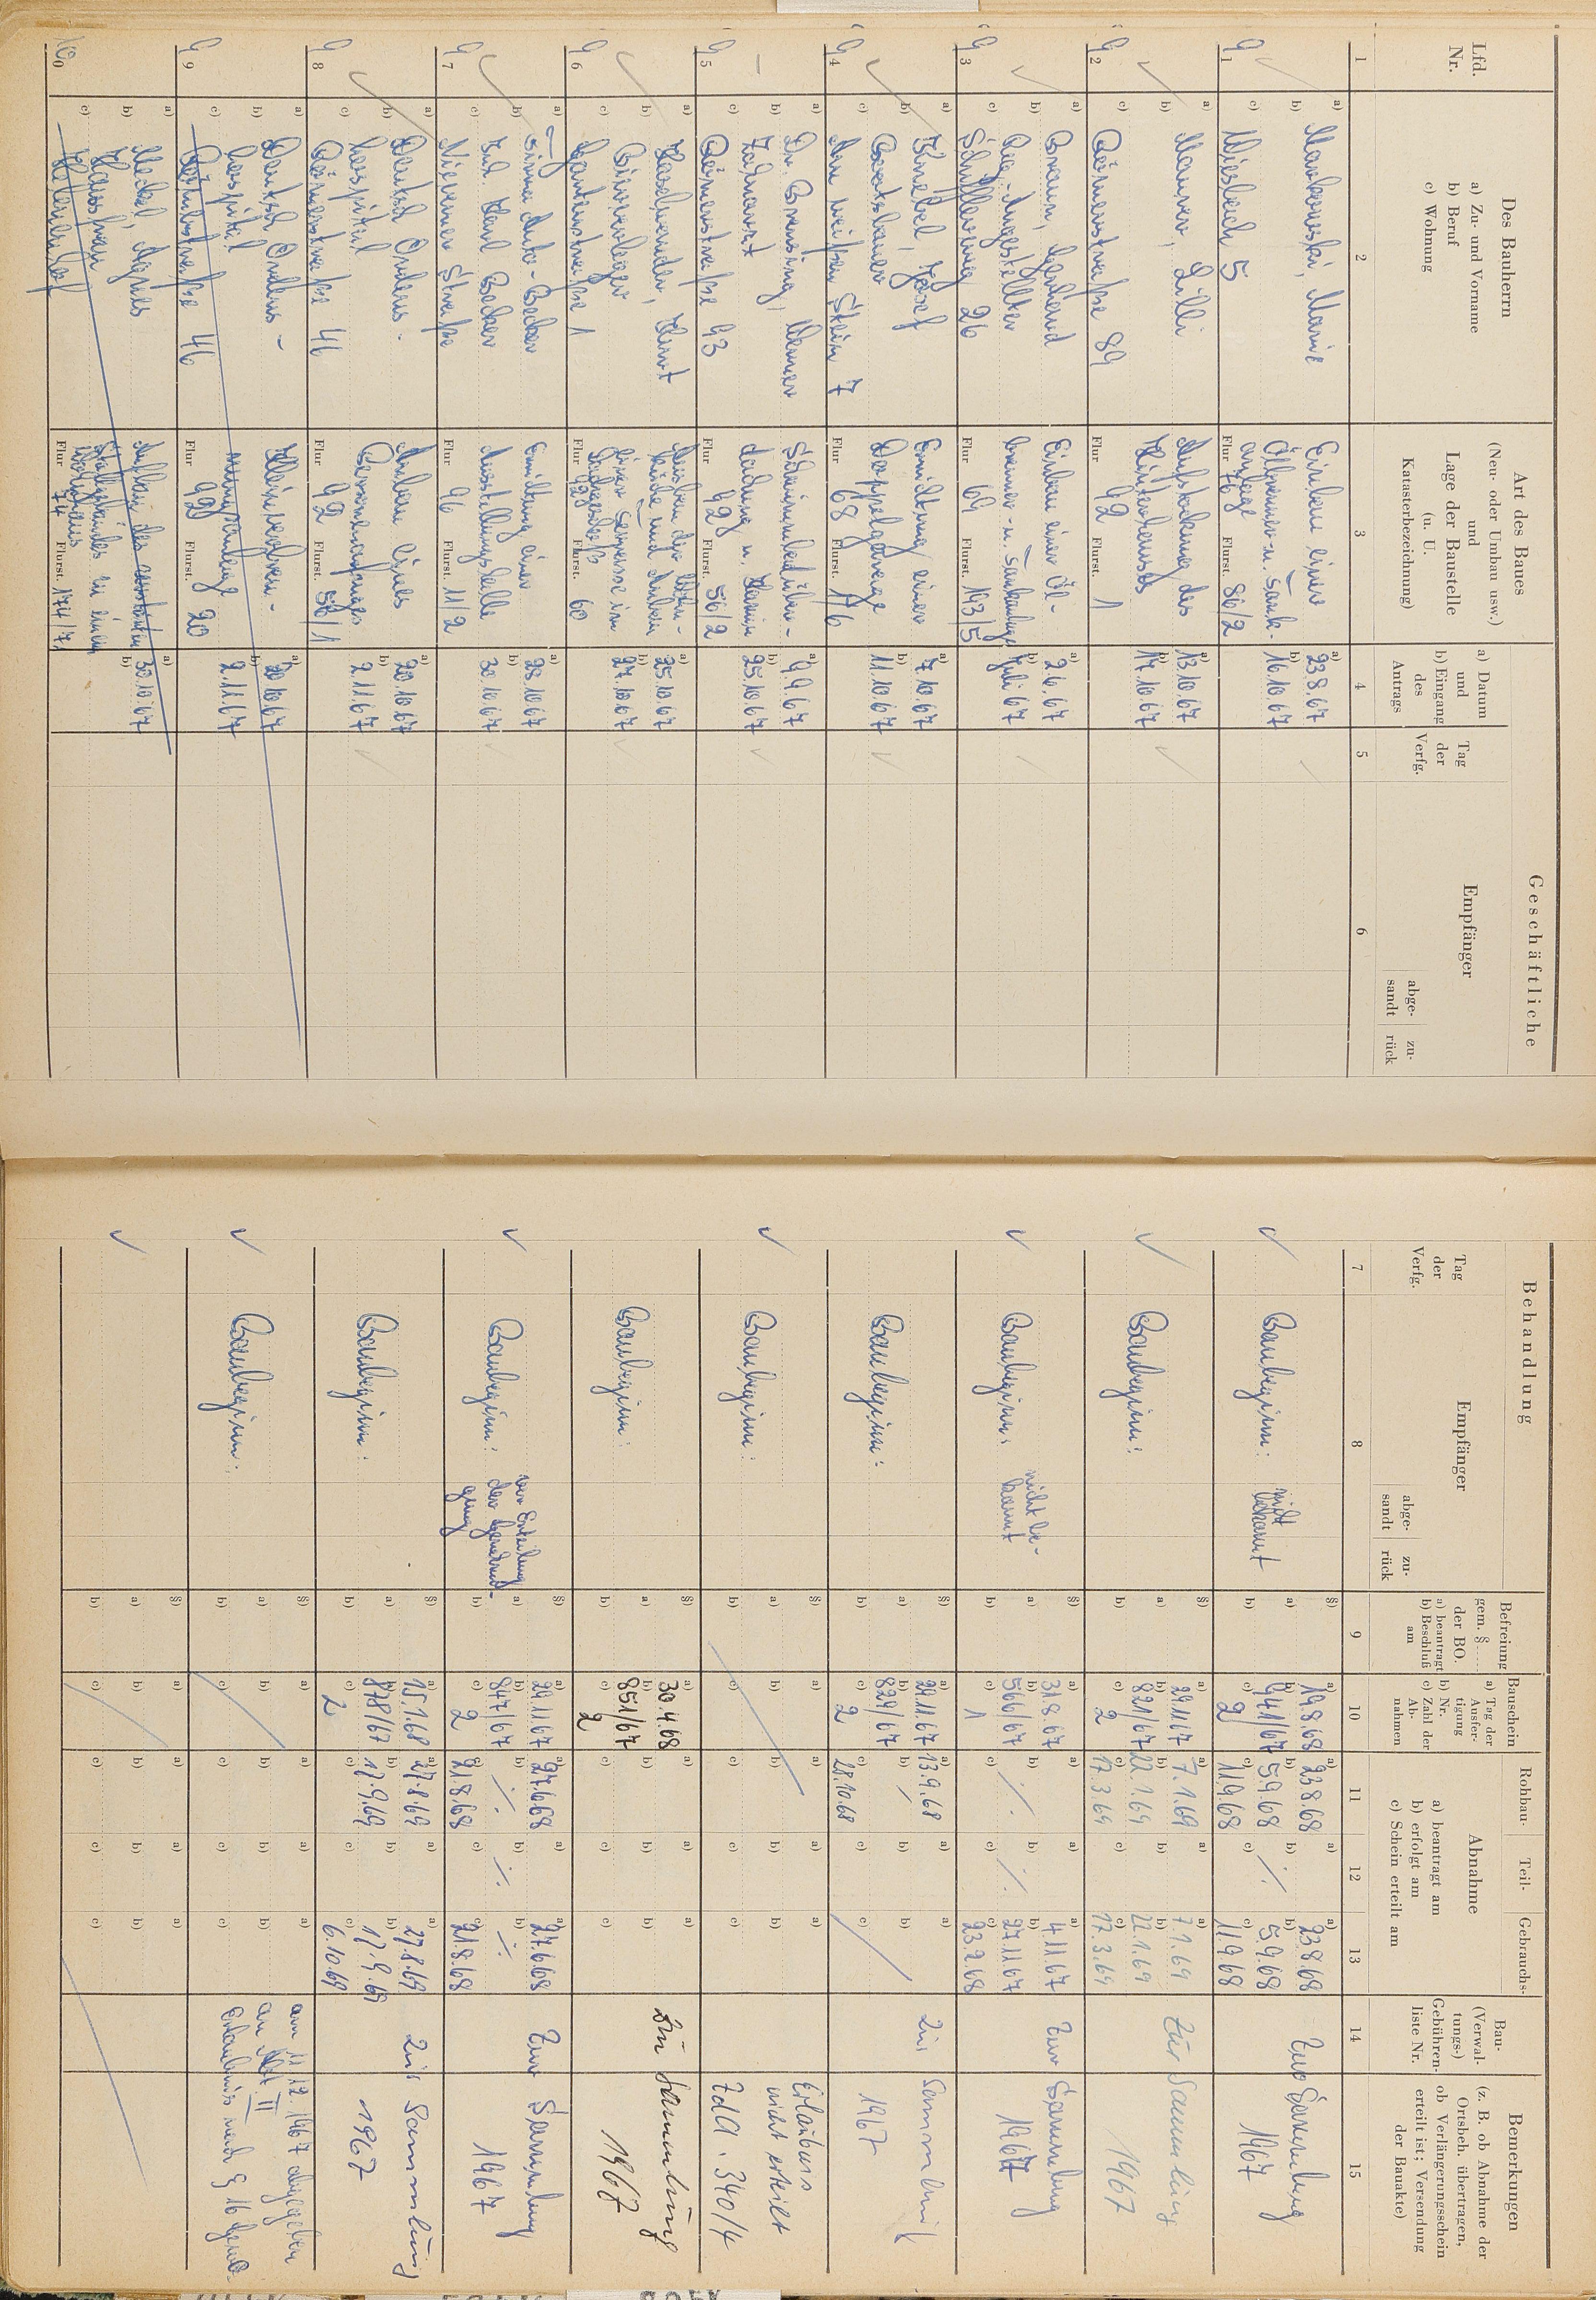 Geschäftliche
Lfd.
Nr.
Des Bauherrn
a) Zu- und Vorname
b) Beruf
c) Wohnung
Art des Baues
(Neu- oder Umbau usw.)
und
Lage der Baustelle
(u. U.
Katasterbezeichnung)
a) Datum
und
b) Eingang
des
Antrags
Tag
der
Verfg.
Empfänger
abge-
sandt
zu-
rück
1 2 3 4 5 6
91
a) Markowski, Marie
b)
c) Wiesbach 5
Einbau einer
Ölbrenner- u. Tank-
anlage
Flur 76 Flurst. 86/2
a) 23.8.67
b) 16.10.67
92
a) Maurer, Lilli
b)
c) Römerstraße 89
Aufstockung des
Hinterhauses
Flur 42 Flurst. 1
a) 13.10.67
b) 17.10.67
93
a) Braun, Gerhard
b) Reg.-Angestellter
c) Schillerweg 26
Einbau einer Öl-
brenner- u. Tankanlage
Flur 69 Flurst. 193/5
a) 2.6.67
b) Juli 67
94
a) Knebel, Josef
b) Bootsbauer
c) Am weißen Stein 7
Errichtung einer
Doppelgarage
Flur 68 Flurst. 1/6
a) 7.10.67
b) 11.10.67
95
a) Dr. Breusing, Werner
b) Zahnarzt
c) Römerstraße 43
Schwimmbadüber-
dachung u. Kamin
Flur 428 Flurst. 56/2
a) 9.9.67
b) 25.10.67
96
a) Haslpeuder, Kurt
b) Bierverleger
c) Gartenstraße 1
küche und Anbau
einer Terrasse im
Dachgeschoß
Flur 428 Flurst. 60
a) 25.10.67
b) 27.10.67
97
a) Firma Auto-Becker
b) Inh. Karl Becker
c) Nieverner Straße
Errichtung einer
Ausstellungshalle
Flur 96 Flurst. 11/2
a) 23.10.67
b) 30.10.67
98
a) Deutsch Ordens-
b) hospital
c) Römerstraße 46
Anbau eines
Personenaufzuges
Flur 42 Flurst. 56/1
a) 20.10.67
b) 2.11.67
99
a) Deutsch Ordens-
b) hospital
c) Römerstraße 46
Kleinverbren-
nungsanlage
Flur 428 Flurst. 20
a) 20.10.67
b) 2.11.67
100
a) Meckel, Agnes
b) Hausfrau
c)
Wohnhaus
Flur 74 Flurst. 174/7
a) 30.10.67
b)
Behandlung
Tag
der
Verfg.
Empfänger
abge-
sandt
zu-
rück
Befreiung
gem. §
der BO.
a) beantragt
b) Beschluß
am
Bauschein
a) Tag der
Ausfer-
tigung
b) Nr.
c) Zahl der
Ab-
nahmen
Rohbau- Teil- Gebrauchs-
Abnahme
a) beantragt am
b) erfolgt am
c) Schein erteilt am
Bau-
(Verwal-
tungs-)
Gebühren-
liste Nr.
Bemerkungen
(z. B. ob Abnahme der
Ortsbeh. übertragen,
ob Verlängerungsschein
erteilt ist; Versendung
der Bauakte)
7 8 9 10 11 12 13 14 15
Baubeginn: nicht
bekannt
a) 19.8.68
b) 941/67
c) 2
a) 23.8.68
b) 5.9.68
c) 11.9.68
a) 23.8.68
b) 5.9.68
c) 11.9.68
Zur Sammlung
1967
Baubeginn:
a) 29.11.67
b) 821/67
c) 2
a) 7.1.69
b) 22.1.69
c) 17.3.69
a) 7.1.69
b) 22.1.69
c) 17.3.69
Zur Sammlung
1967
Baubeginn: nicht be-
kannt
a) 31.8.67
b) 566/67
c) 1
a) 4.11.67
b) 27.11.67
c) 23.2.68
Zur Sammlung
1967
Baubeginn:
a) 29.11.67
b) 829/67
c) 2
a) 13.9.68
c) 28.10.68
Zur Sammlung
1967
Baubeginn:
Erlaubnis
nicht erteilt
ZdA. 340/4
Baubeginn:
a) 30.4.68
b) 851/67
c) 2
Zur Sammlung
1967
Baubeginn: vor Erteilung
der Genehmi-
gung
a) 29.11.67
b) 847/67
c) 2
a) 27.6.68
c) 21.8.68
a) 27.6.68
c) 21.8.68
Zur Sammlung
1967
Baubeginn:
a) 15.1.68
b) 878/67
c) 2
a) 27.8.69
b) 17.9.69
a) 27.8.69
b) 17.9.69
c) 6.10.69
Zur Sammlung
1967
Baubeginn:
am 11.12.1967 abgegeben
an Abt. II
Erlaubnis nach § 16 Gewo.